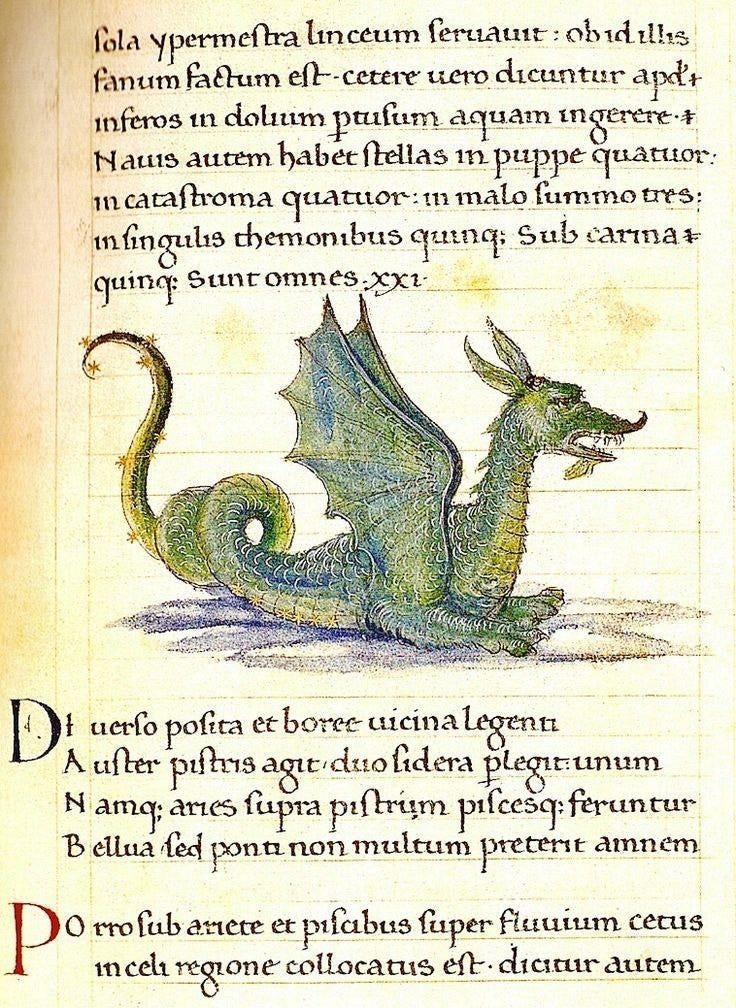 sola ypermestra linceum seruauit : ob id illis
fanum factum est · cetere uero dicuntur apd' ⁊
inferos in dolium ꝑtusum aquam ingerere · ⁊
Nauis autem habet stellas in puppe quatuor:
in catastroma quatuor : in malo summo tres :
in singulis themonibus quinq; Sub carina ⁊
quinq; Sunt omnes · xxi ·
Di uerso posita et boree uicina legenti
Auster pistris agit · duo sidera ꝑlegit : unum
Namq; aries supra pistrim piscesq; feruntur
Bellua sed ponti non multum preterit amnem
Porro sub ariete et piscibus super fluuium cetus
in celi regione collocatus est · dicitur autem